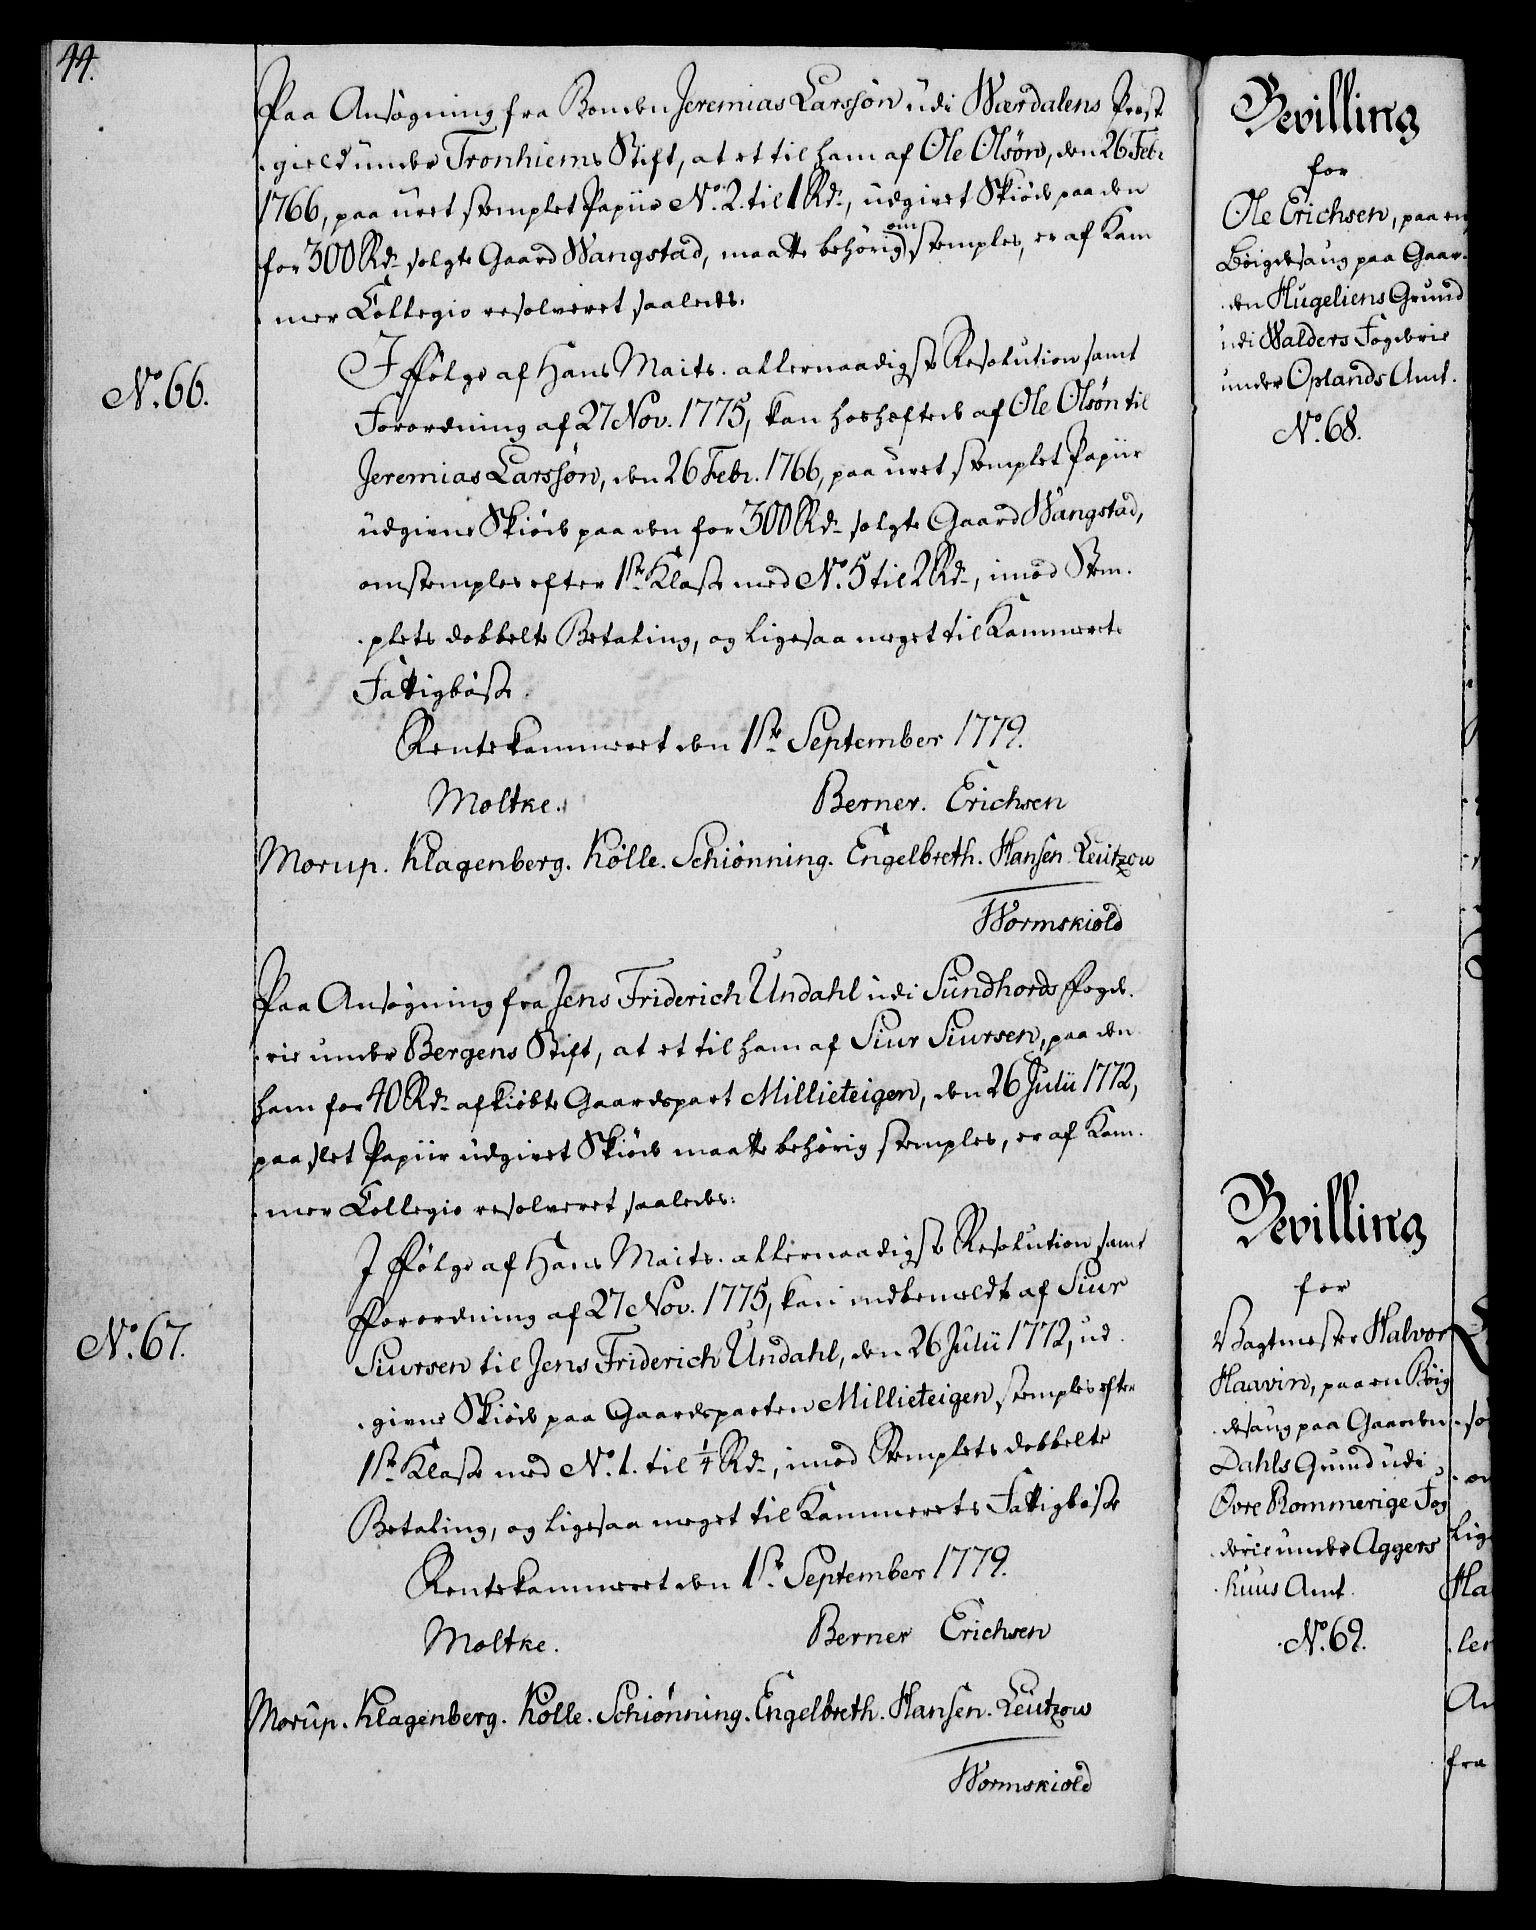 44.
Paa Ansøgning fra Bonden Jeremias Larssøn udi Wærdalens Præste
gield under Tronhiems Stift, at et til ham af Ole Olsøn, den 26 Febr.
1766, paa uret stemplet Papiir No. 2. til 1 Rd., udgivet Skiøde paa den
for 300 Rd. solgte Gaard Wangstad, maatte behørig om stemples, er af Kam
mer Collegio resolveret saaledes.
No. 66.
I Følge af Hans Maits. allernaadigste Resolution samt
Forordning af 27 Nov. 1775, kan hoshæftede af Ole Olsøn til
Jeremias Larssøn, den 26 Febr. 1766, paa uret stemplet Papiir
udgivne Skiøde paa den for 300 Rd. solgte Gaard Wangstad,
omstemples efter 1ste Klasse med No. 5 til 2 Rd., imod Stem-
plets dobbelte Betaling, og ligesaa meget til Kammerets
Fattigbøsse.
Rentekammeret den 1ste September 1779.
Moltke. Berner. Erichsen
Morup. Klagenberg. Kølle. Schiønning. Engelbreth. Hansen. Leützow
Wormskiold
Paa Ansøgning fra Jens Friderich Undahl udi Sundhords Fogd-
rie under Bergens Stift, at et til ham af Siur Siursen, paa den
ham for 40 Rd. afkiøbte Gaardspart Millieteigen, den 26 Julii 1772,
paa slet Papiir udgivet Skiøde maatte behørig stemples, er af Kam-
mer Collegio resolveret saaledes:
No. 67.
I Følge af Hans Maits. allernaadigste Resolution samt
Forordning af 27 Nov. 1775, kan indbemeldte af Siur
Siursen til Jens Friderich Undahl, den 26 Julii 1772, ud-
givne Skiøde paa Gaardsparten Millieteigen stemples efter
1ste Klasse med No. 1. til 1/4 Rd., imod Stemplets dobbelte
Betaling, og ligesaa meget til Kammerets Fattigbøsse
Rentekammeret den 1ste September 1779.
Moltke. Berner Erichsen
Morup. Klagenberg. Kølle. Schiønning. Engelbreth. Hansen. Leützow
Wormskiold
Bevilling
for
Ole Erichsen, paa en
Bøigdesaug paa Gaar-
den Hugeliens Grund
udi Walders Fogderie
under Oplands Amt.
No. 68.
Bevilling
for
Vagtmester Halvor
Haavin, paa en Bøig
desaug paa Gaarden
Dahls Grund udi
Øvre Rommerige Fog
derie under Aggers
huus Amt.
No. 69.
Lig
Ha
ler
An
fra